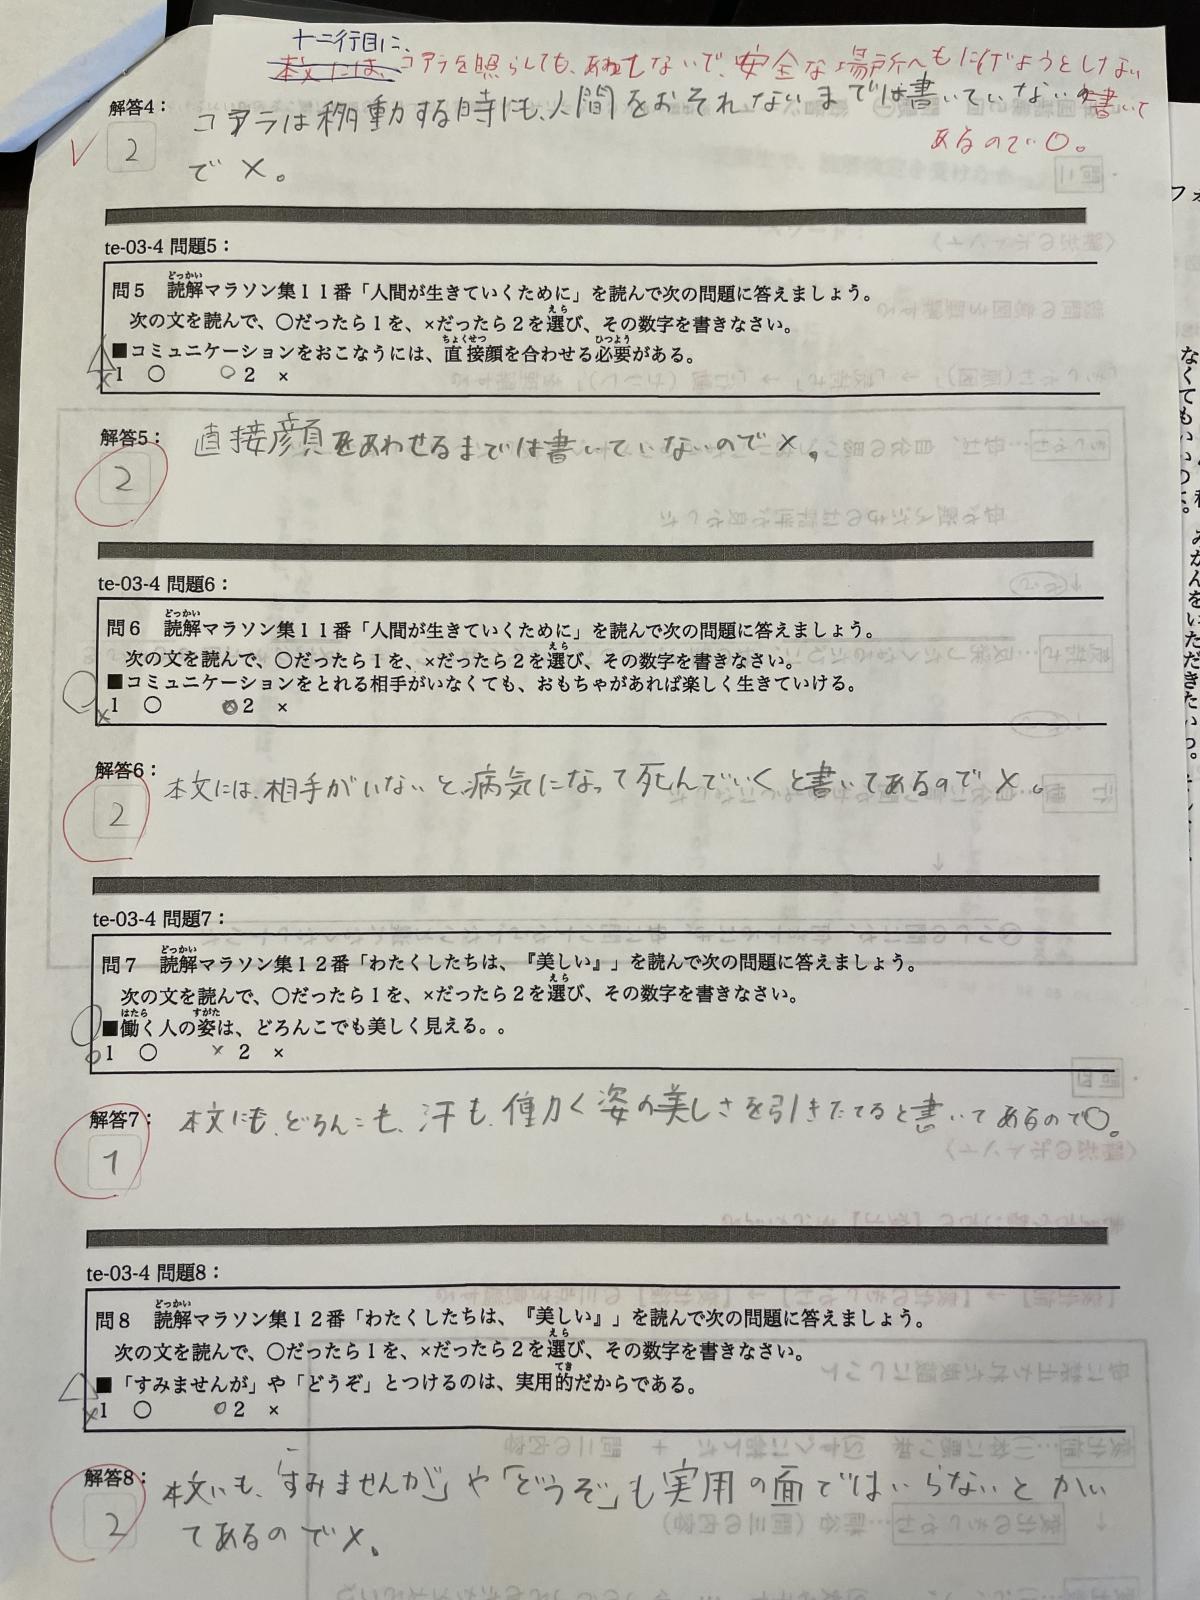 十二行目に、
本文には、コアラを照らしても、あわてもしないで、安全な場所へもにげようとしない
書いて
あるので○。
解答4：
2
コアラは移動する時にも、人間をおそれないまでは書いていないの
で×。
te-03-4 問題5：
問５　読解マラソン集１１番「人間が生きていくために」を読んで次の問題に答えましょう。
次の文を読んで、○だったら１を、×だったら２を選び、その数字を書きなさい。
■コミュニケーションをおこなうには、直接顔を合わせる必要がある。
1　○　　2　×
解答5：
2
直接顔をあわせるまでは書いていないので×。
te-03-4 問題6：
問６　読解マラソン集１１番「人間が生きていくために」を読んで次の問題に答えましょう。
次の文を読んで、○だったら１を、×だったら２を選び、その数字を書きなさい。
■コミュニケーションをとれる相手がいなくても、おもちゃがあれば楽しく生きていける。
1　○　　2　×
解答6：
2
本文には、相手がいないと、病気になって死んでいくと書いてあるので×。
te-03-4 問題7：
問７　読解マラソン集１２番「わたくしたちは、『美しい』」を読んで次の問題に答えましょう。
次の文を読んで、○だったら１を、×だったら２を選び、その数字を書きなさい。
■働く人の姿は、どろんこでも美しく見える。。
1　○　　×　2　×
解答7：
1
本文にも、どろんこも、汗も、働く姿の美しさを引きたてると書いてあるので○。
te-03-4 問題8：
問８　読解マラソン集１２番「わたくしたちは、『美しい』」を読んで次の問題に答えましょう。
次の文を読んで、○だったら１を、×だったら２を選び、その数字を書きなさい。
■「すみませんが」や「どうぞ」とつけるのは、実用的だからである。
1　○　　2　×
解答8：
2
本文にも、「すみませんが」や「どうぞ」も実用の面ではいらないとかい
てあるので×。